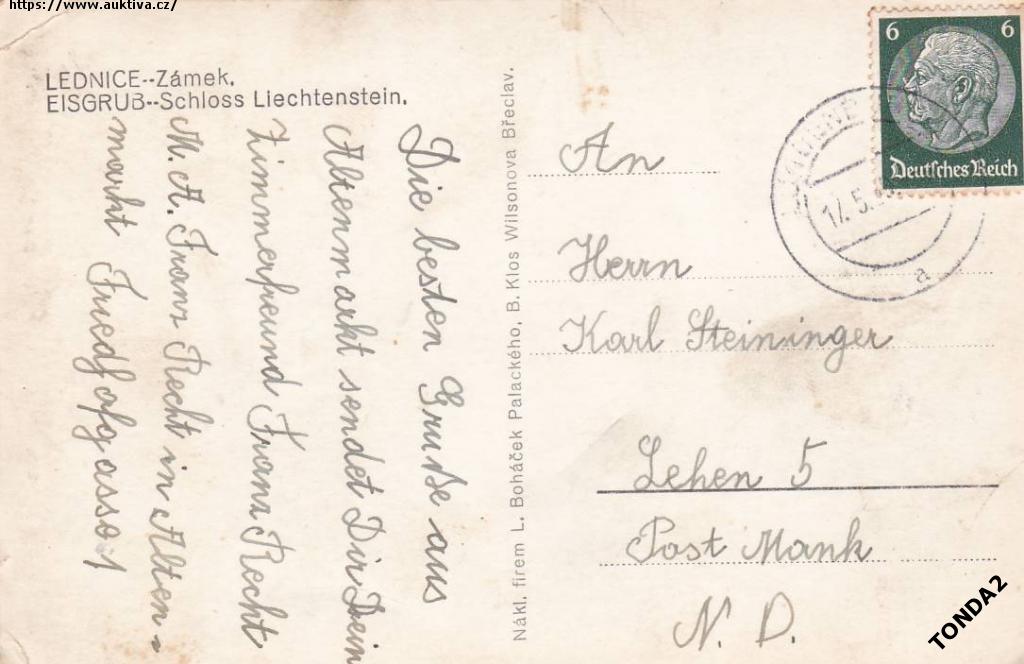 https://www.auktiva.cz/
LEDNICE--Zámek.
EISGRUB--Schloss Liechtenstein.
Die besten Gruße aus
Altenmarkt sendet Dir Dein
Zimmerfreund Franz Recht
M. A. Franz Recht in Alten-
markt Friedhofgasse 1
Nákl. firem L. Boháček Palackého, B. Klos Wilsonova Břeclav.
6 6
Deutsches Reich
17.5.
a
An
Herrn
Karl Steininger
Lehen 5
Post Mank
N. D.
TONDA2